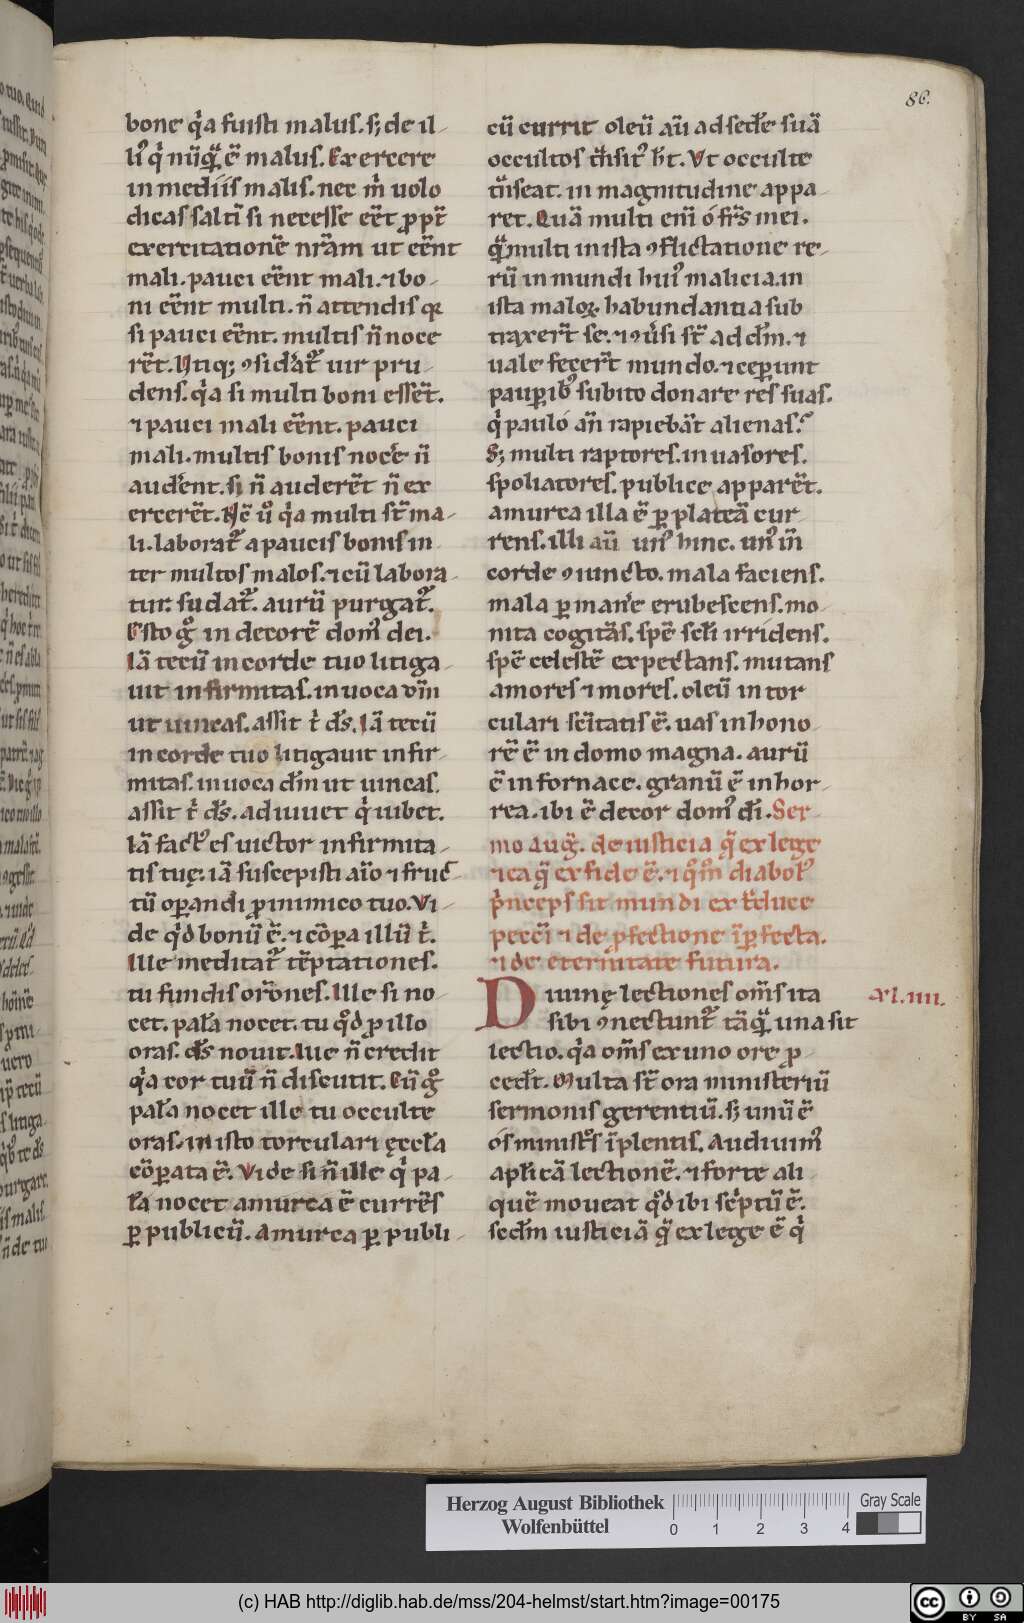 86.
bone q̇a fuisti malus. s; de il-
li᷒ q̇ nūq̄ᷓ ē malus. Exercere
in mediis malis. nec ṁ uolo
dicas saltī si necesse eēt ꝓpt̄
exercitationē nr̄am ut eēnt
mali. pauci eēnt mali. ⁊ bo-
ni eēnt multi. n̄ attendis qꝛ
si pauci eēnt. multis n̄ noce
rēt. Vtiq; ꝯsid̓at᷑ uir pru-
dens. q̇a si multi boni essēt.
⁊ pauci mali eēnt. pauci
mali. multis bonis noc̓e n̄
aud̓ent. si n̄ auderēt n̄ ex
ercerēt. Nc̄ u̓o q̇a multi st̄ ma-
li. laborat᷑ a paucis bonis in-
ter multos malos. ⁊ cū labora-
tur. sudat᷑. aurū purgat᷑.
Esto gͦ in decorē dom᷒ dei.
Iā tecū in corde tuo litiga-
uit infirmitas. inuoca dn̄m
ut uincas. assit t̓ d̄s. Iā tecū
in corde tuo litigauit infir-
mitas. inuoca dn̄m ut uincas.
assit t̓ d̄s. adiuuet q̇ iubet.
Iā fact᷒ es uictor infirmita-
tis tuę. iā suscepisti aīo ⁊ fruc-
tū oꝑandi ꝓ inimico tuo. Vi-
de qͥd bonū ē. ⁊ cōꝑa illū t̓.
Ille meditat᷑ tēptationes.
tu fundis or̄ones. Ille si no-
cet. palā nocet. tu qͦd ꝓ illo
oras. d̄s nouit. Iue n̄ credit
q̇a cor tuū n̄ discutit. Cū gͦ
palā nocet ille tu occulte
oras. in isto torculari ęccl̄a
cōꝑata ē. Vide si n̄ ille q̇ pa-
lā nocet amurca ē currēs
ꝑ publicū. Amurca ꝑ publi-
cū currit oleū aū ad sed̓e suā
occultos t̄nsit᷒ h̄t. Vt occulte
t̄nseat. in magnitudine appa-
ret. Quā multi eni᷒ ó fr̄s mei.
qᷓ multi in ista ꝯflictatione re-
rū in mundi hui᷒ malicia. in
ista maloꝝ habundantia sub
traxer̄t se. ⁊ ꝯu̓si st̄ ad dn̄m. ⁊
uale fecer̄t mundo. ⁊ ceꝑunt
pauꝑib᷒ subito donare res suas.
q̇ pauló an̄ rapiebāt alienas.
S; multi raptores. inuasores.
spoliatores. publice apparēt.
amurca illa ē ꝑ plateā cur-
rens. illi aū un᷒ hinc. un᷒ in̄
corde ꝯiuncto. mala faciens.
mala ꝑ man̓e erubescens. mo-
nita cogitās. spē scl̄i irridens.
spē celestē expectans. mutans
amores ⁊ mores. oleū in tor
culari sc̄itatis ē. uas in hono-
rē ē in domo magna. aurū
ē in fornace. granū ē in hor-
rea. ibi ē decor dom᷒ dī. Ser-
mo Aug̓. de iusticia q̄ ex lege
⁊ ea q̄ ex fide ē. ⁊ qͦm̄ diabol᷒
pͥnceps sit mundi ex t̄duce
peccī ⁊ de ꝓfectione īꝑfecta.
⁊ de eternitate futura.
Diuinę lectiones om̄s ita
xl. iiii.
sibi ꝯnectunt᷑ tāqᷓ una sit
lectio. q̇a om̄s ex uno ore ꝓ-
ced̄t. Multa st̄ ora ministeriū
sermonis gerentiū. s; unū ē
ós minist̓s īplentis. Audiuim᷒
apl̄icā lectionē. ⁊ forte ali-
quē moueat qͦd ibi scͥptū ē.
scd̄m iusticiā q̄ ex lege ē q̇
Herzog August Bibliothek
Wolfenbüttel
0 1 2 3 4
Gray Scale
(c) HAB http://diglib.hab.de/mss/204-helmst/start.htm?image=00175
cc BY SA